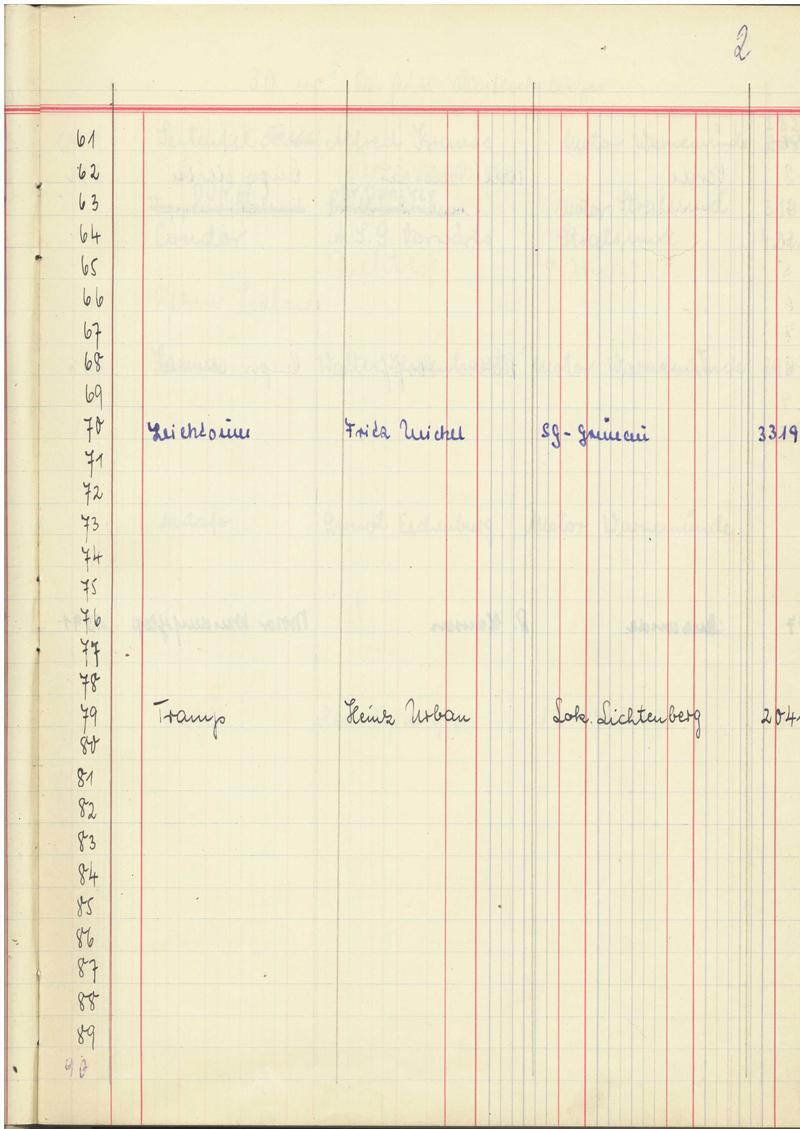 2
61
62
63
64
65
66
67
68
69
70 Fritz Michel SG-Grünau 3319
71
72
73
74
75
76
77
78
79 Tramp Heinz Urban Lok. Lichtenberg 204
80
81
82
83
84
85
86
87
88
89
90